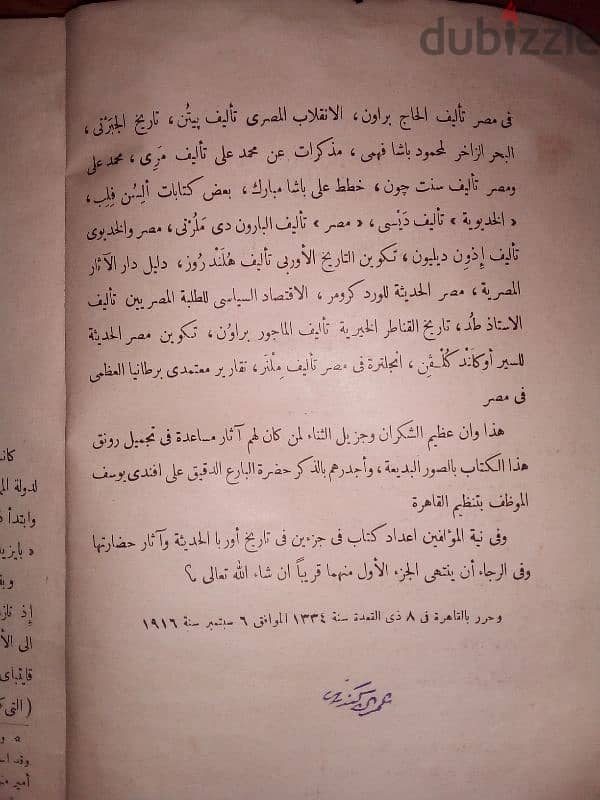 dubizzle
فى مصر تأليف الحاج براون، الانقلاب المصرى تأليف پيتُن، تاريخ الجبَرْتى،
البحر الزاخر لمحمود باشا فهمى، مذكرات عن محمد على تأليف مَرِى، محمد على
ومصر تأليف سنت چون، خطط على باشا مبارك، بعض كتابات أليسُن فِلِب،
« الخديوية » تأليف دَيْسى، « مصر » تأليف البارون دى مَلُرْتى، مصر والخديوى
تأليف إذون ديليون، تكوين التاريخ الأوربى تأليف هُلَنْد رُوز، دليل دار الآثار
المصرية، مصر الحديثة للورد كرومر، الاقتصاد السياسى للطلبة المصريين تأليف
الاستاذ طُد، تاريخ القناطر الخيرية تأليف الماجور براوُن، تكوين مصر الحديثة
للسير أوكلَنْد كُلْفِن، انجلترة فى مصر تأليف مِلْنَر، تقارير معتمدى برطانيا العظمى
فى مصر
هذا وان عظيم الشكران وجزيل الثناء لمن كان لهم آثار مساعدة فى تجميل رونق
هذا الكتاب بالصور البديعة، وأجدرهم بالذكر حضرة البارع الدقيق على افندى يوسف
الموظف بتنظيم القاهرة
وفى نية المؤلفين اعداد كتاب فى جزءين فى تاريخ أوربا الحديثة وآثار حضارتها
وفى الرجاء أن ينتهى الجزء الأول منهما قريباً ان شاء الله تعالى م؟
وحرر بالقاهرة فى ٨ ذى القعدة سنة ١٣٣٤ الموافق ٦ سبتمبر سنة ١٩١٦
كانت
لدولة
وابتدأ
« بايزيد
إذ تناز
الى الأ
قايتباى
( التى